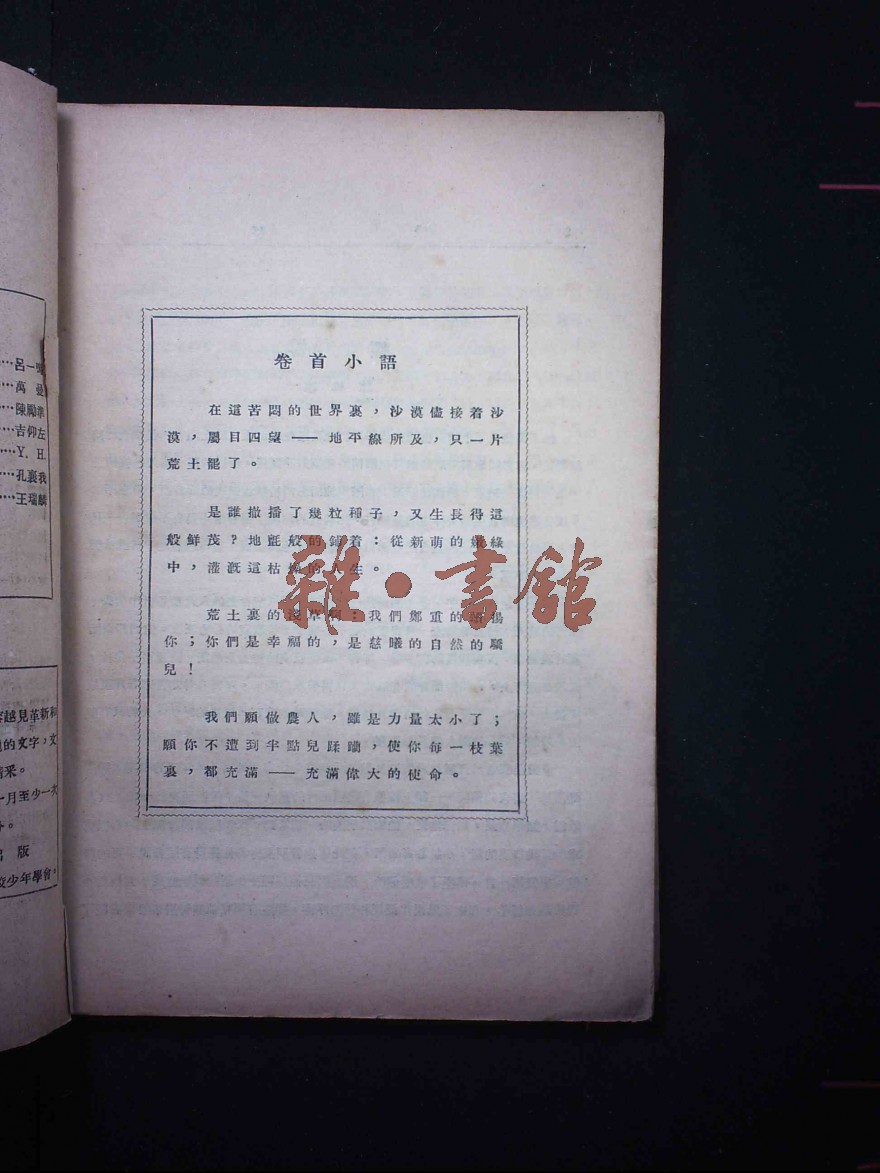 卷首小語
在這苦悶的世界裏，沙漠儘接着沙
漠，屬目四望——地平線所及，只一片
荒土罷了。
是誰撒播了幾粒種子，又生長得這
般鮮茂？地氈般的鋪着：從新萌的嫩綠
中，灌漑這枯燥的人生。
荒土裏的淺草啊：我們鄭重的頌揚
你；你們是幸福的，是慈曦的自然的驕
兒！
我們願做農人，雖是力量太小了；
願你不遭到半點兒蹂躪，使你每一枝葉
裏，都充滿——充滿偉大的使命。
雜·書館
…呂一
…萬曼
…陳鳳
…吉仰左
…Y. H.
…孔襄我
…王瑞麟
越見革新和
的文字，文
采。
一月至少一次
版
少年學會。